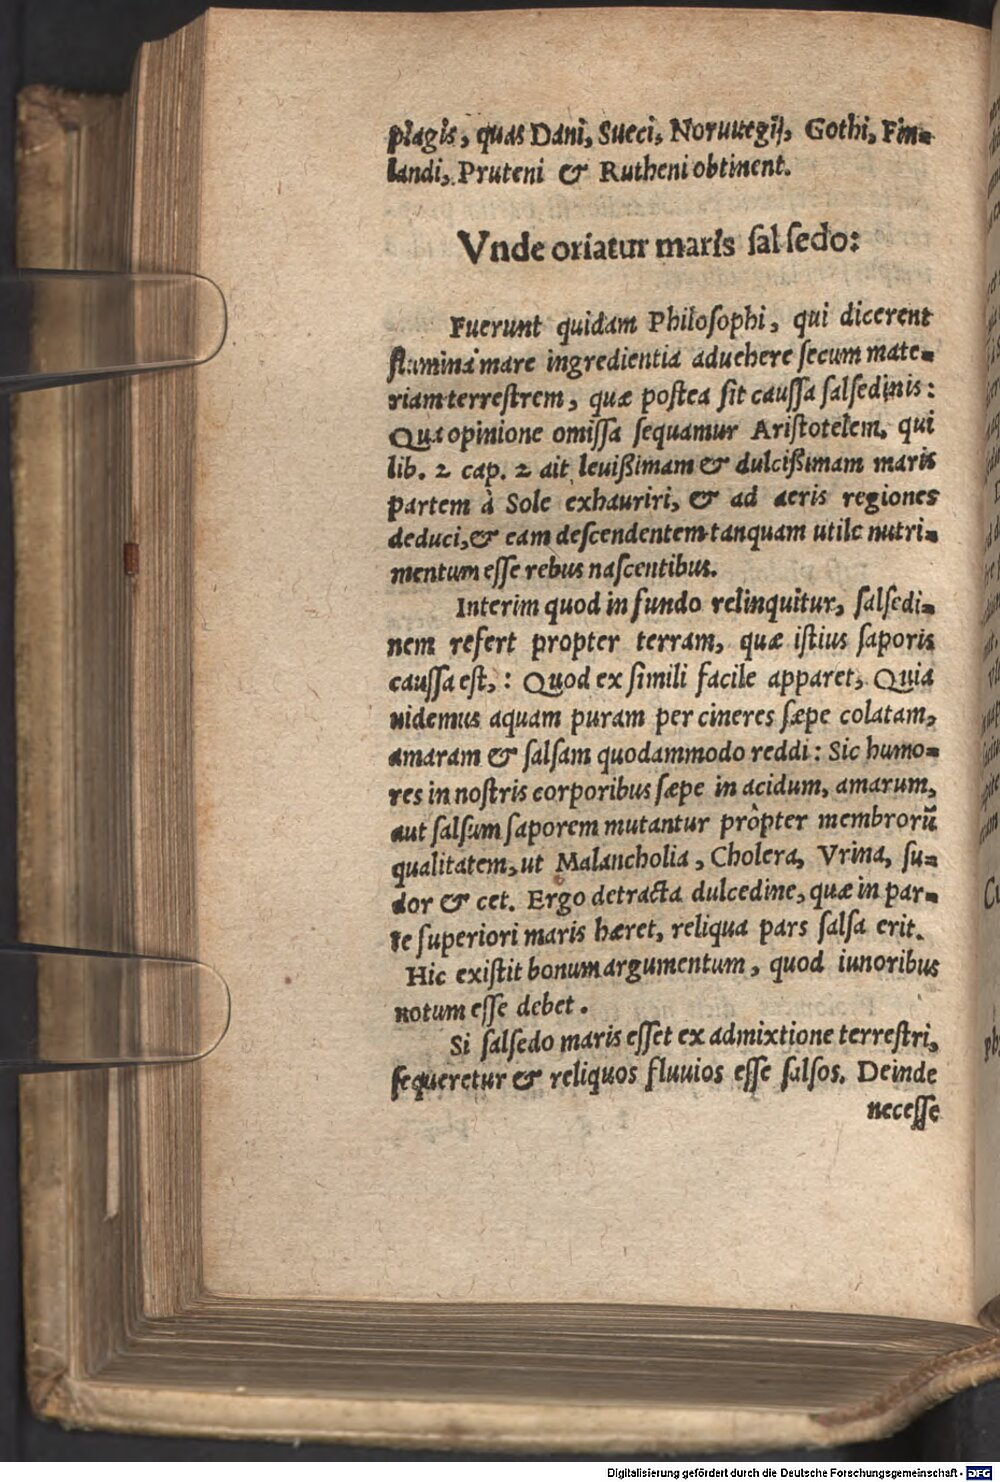 plagis, quas Dani, Sueci, Noruuegij, Gothi, Fin-
landi, Pruteni & Rutheni obtinent.
Vnde oriatur maris salsedo:
Fuerunt quidam Philosophi, qui dicerent
flumina mare ingredientia aduehere secum mate-
riam terrestrem, quæ postea sit caussa salsedinis:
Qua opinione omissa sequamur Aristotelem, qui
lib. 2 cap. 2 ait leuißimam & dulcißimam maris
partem à Sole exhauriri, & ad aeris regiones
deduci, & eam descendentem tanquam utile nutri-
mentum esse rebus nascentibus.
Interim quod in fundo relinquitur, salsedi-
nem refert propter terram, quæ istius saporis
caussa est,: Quod ex simili facile apparet, Quia
uidemus aquam puram per cineres sæpe colatam,
amaram & salsam quodammodo reddi: Sic humo-
res in nostris corporibus sæpe in acidum, amarum,
aut salsum saporem mutantur pròpter membrorũ
qualitatem, ut Malancholia, Cholera, Vrina, su-
dor & cet. Ergo detracta dulcedine, quæ in par-
te superiori maris hæret, reliqua pars salsa erit.
Hic existit bonum argumentum, quod iunoribus
notum esse debet.
Si salsedo maris esset ex admixtione terrestri,
sequeretur & reliquos fluuios esse salsos. Deinde
necesse
Digitalisierung gefördert durch die Deutsche Forschungsgemeinschaft - DFG